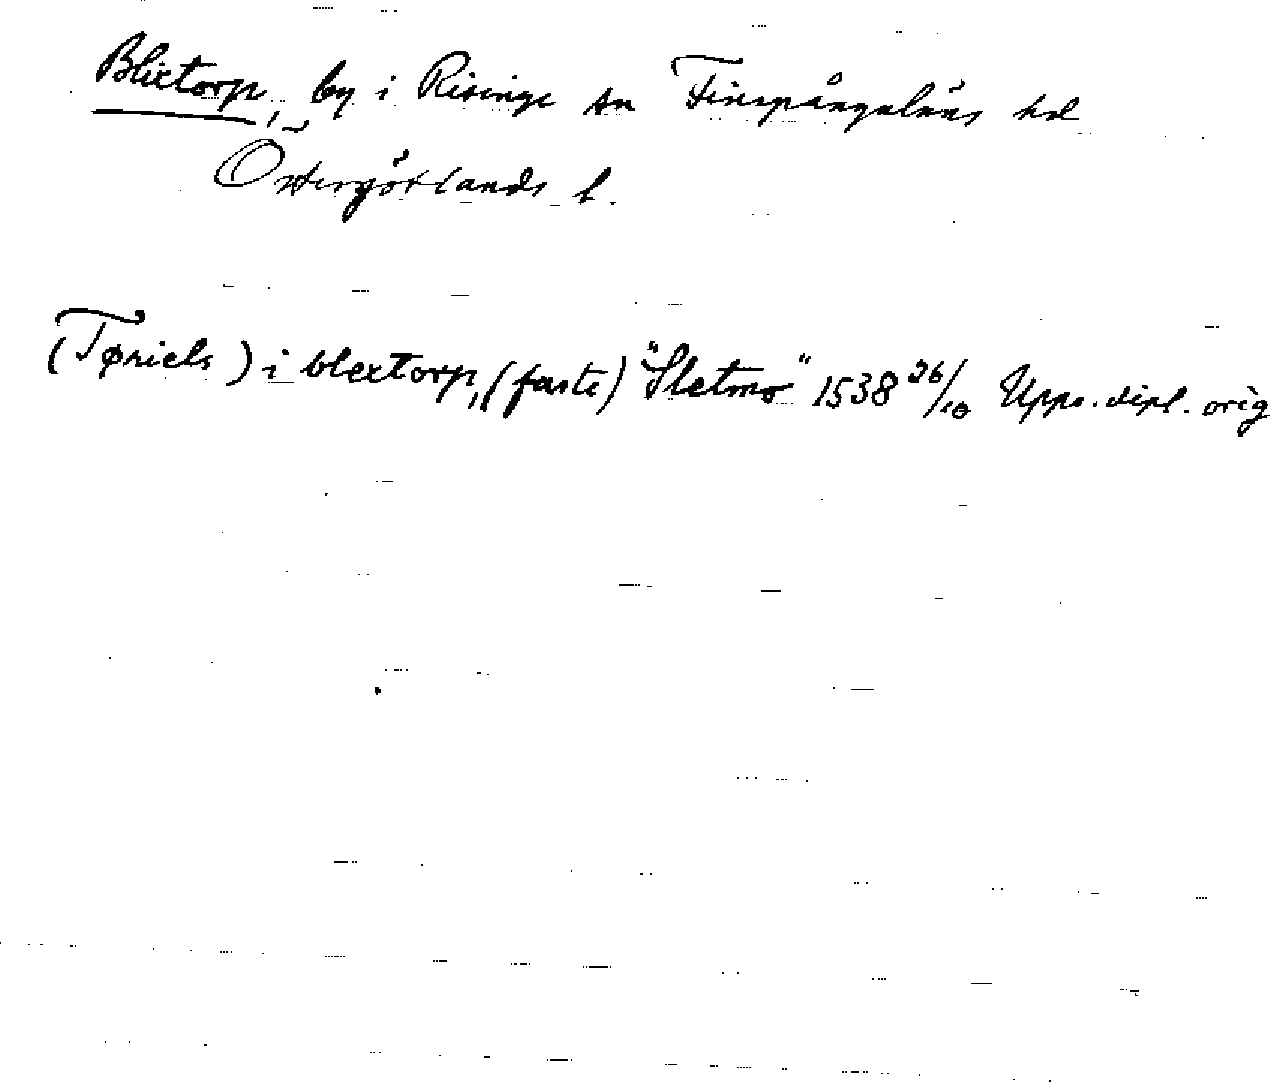 Blixtorp, by i Risinge sn Finspångaläns hd
Östergötlands l.
(Tøriels) i blextorp, (faste) "Sletmo" 1538 26/10 Upps. dipl. orig